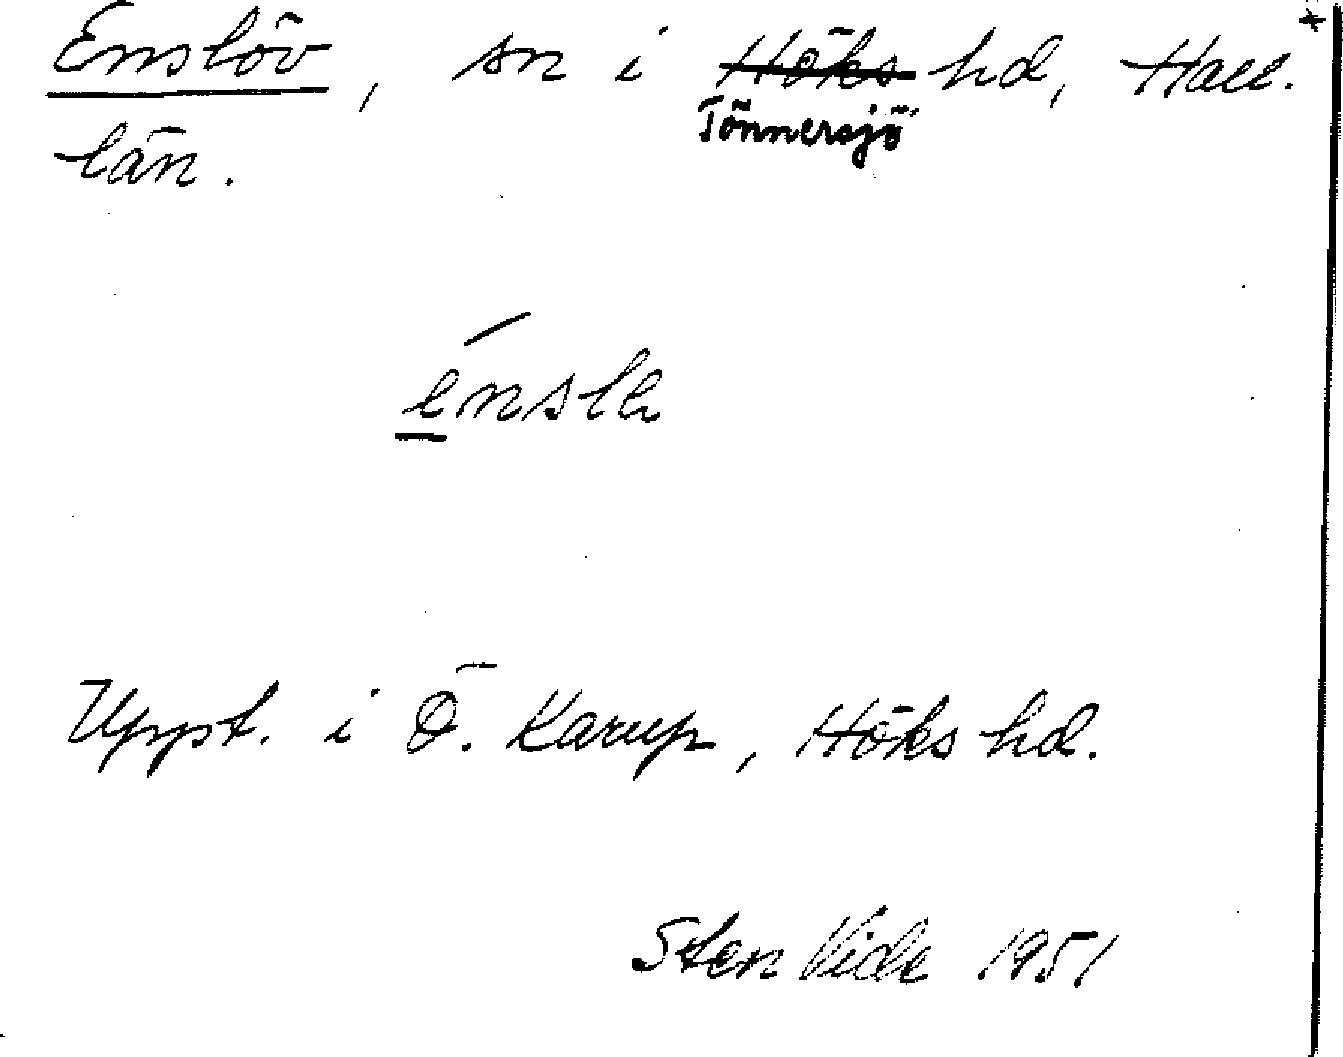 Enslöv, sn i ~~Höks~~ hd, Hall.
Tönnersjö
län.
énsle
Uppt. i Ö. Karup, Höks hd.
Sten Vide 1951